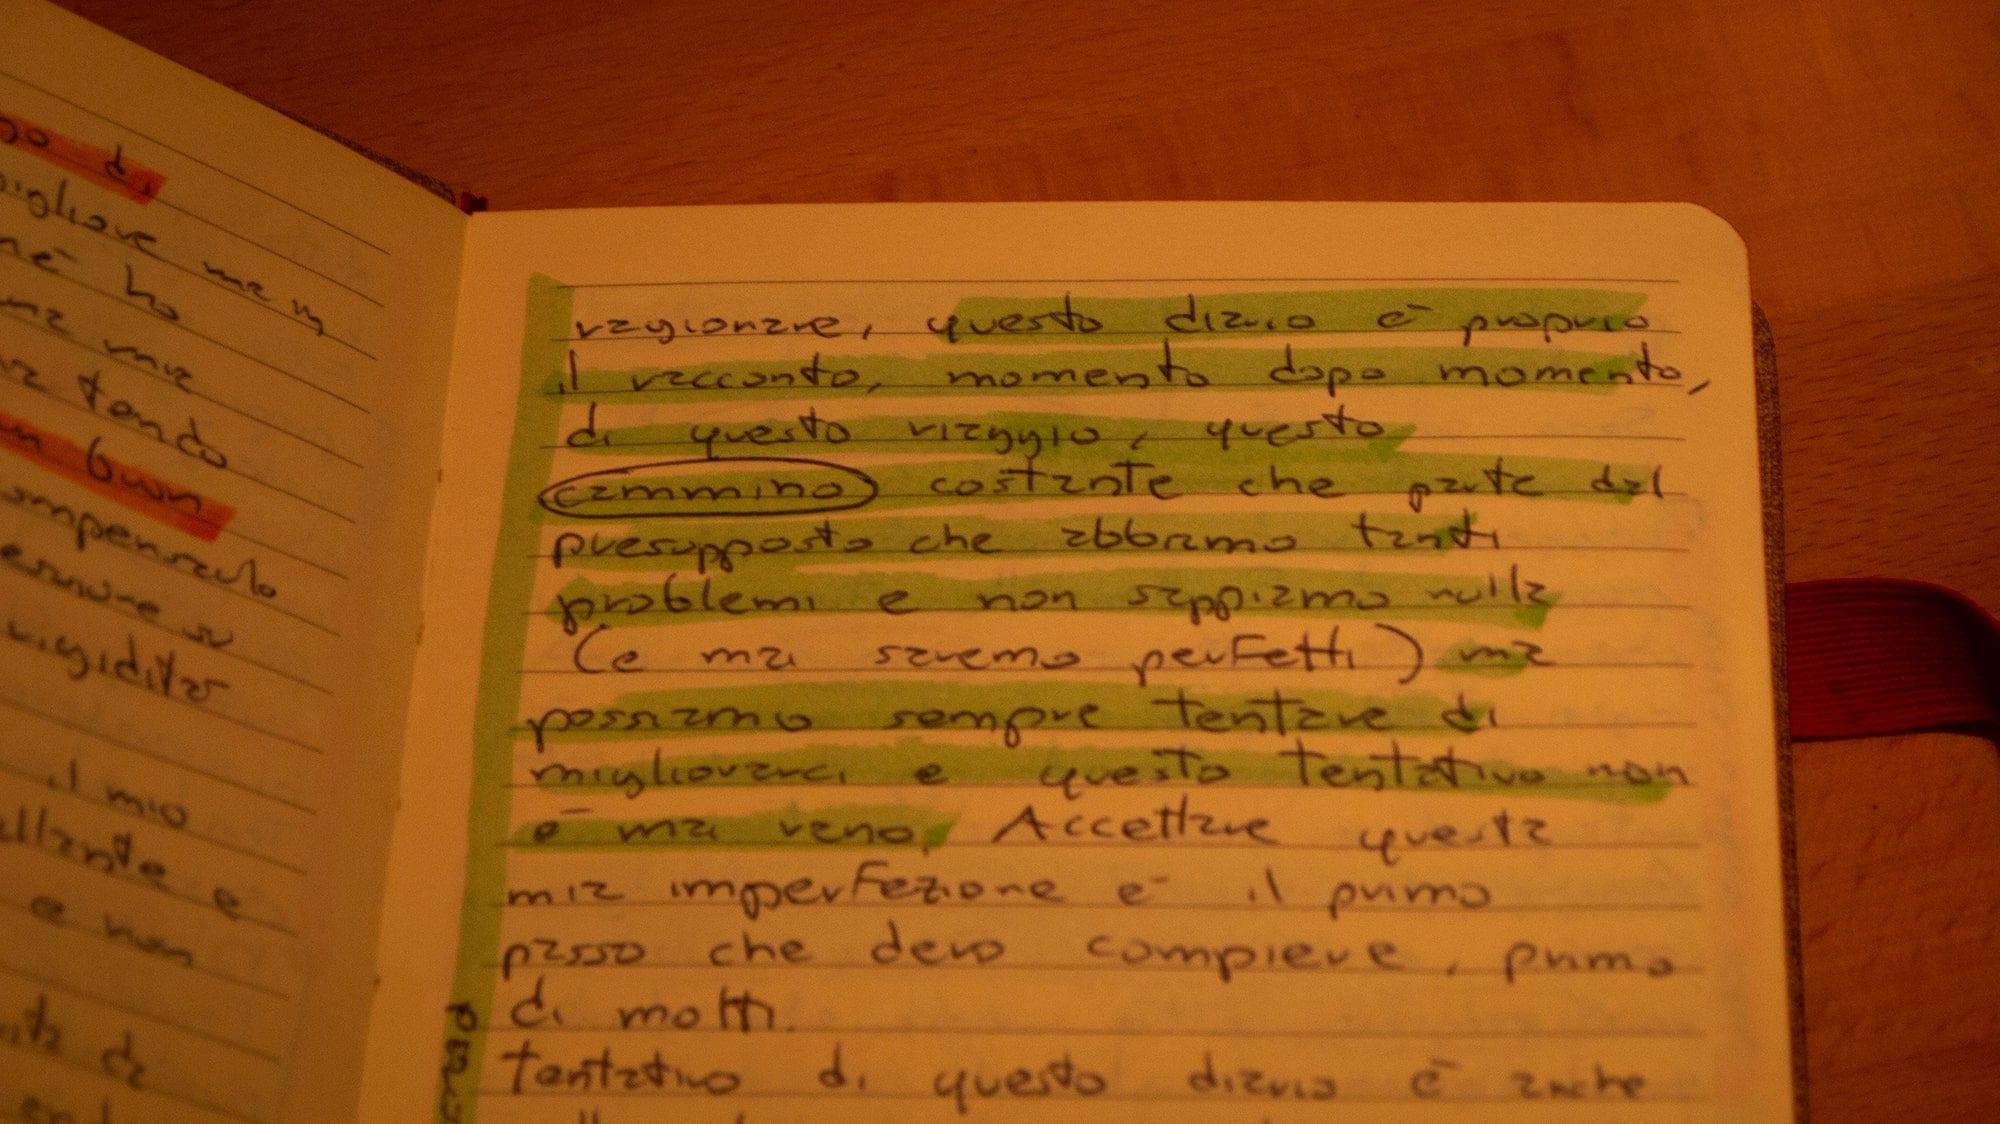 di
migliore ma m
ho
ma mia
tendo
un buon
rigidità
il mio
e
e non
da
ragionare, questo diario è proprio
il racconto, momento dopo momento,
di questo viaggio, questo
cammino costante che parte dal
presupposto che abbiamo tanti
problemi e non sappiamo nulla
(e mai saremo perfetti) ma
possiamo sempre tentare di
migliorarci e questo tentativo non
è mai vano. Accettare questa
mia imperfezione è il primo
passo che devo compiere, primo
di molti.
tentativo di questo diario è anche